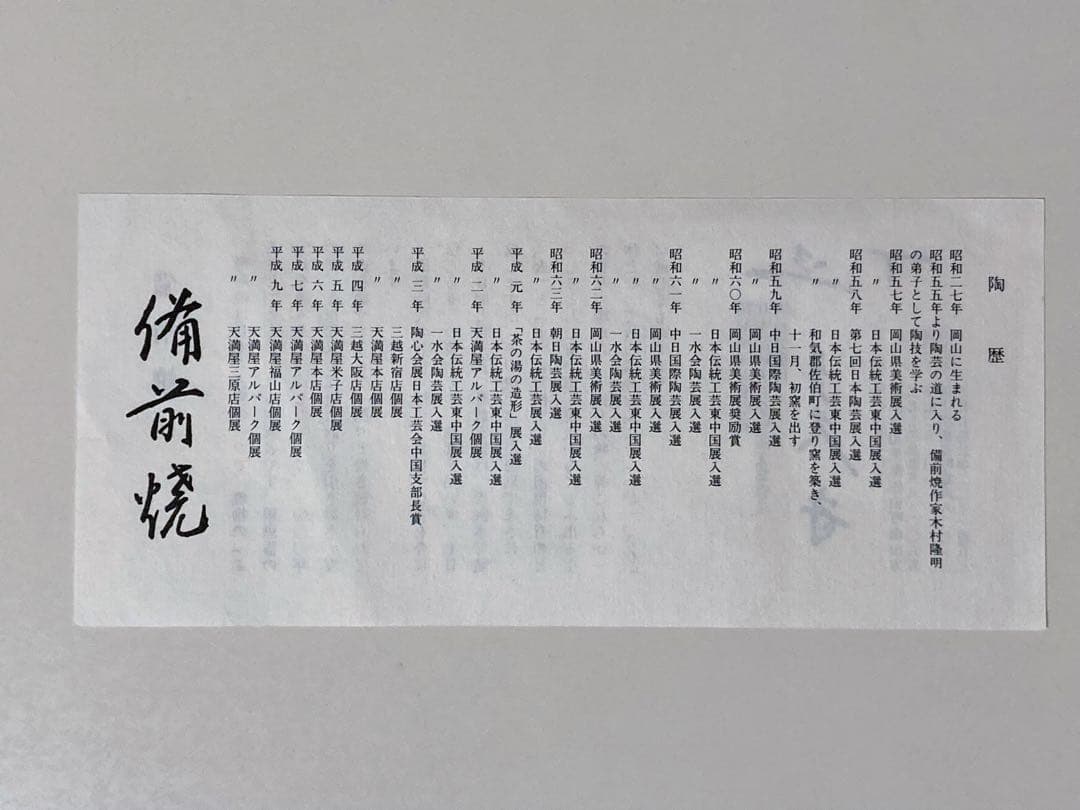 陶歴
昭和二七年 岡山に生まれる
昭和五五年より陶芸の道に入り、備前焼作家木村隆明
の弟子として陶技を学ぶ
昭和五七年 岡山県美術展入選
〃 日本伝統工芸東中国展入選
昭和五八年 第七回日本陶芸展入選
〃 日本伝統工芸東中国展入選
〃 和気郡佐伯町に登り窯を築き、
十一月、初窯を出す
昭和五九年 中日国際陶芸展入選
〃 岡山県美術展入選
昭和六〇年 岡山県美術展奨励賞
〃 日本伝統工芸東中国展入選
〃 一水会陶芸展入選
昭和六一年 中日国際陶芸展入選
〃 岡山県美術展入選
〃 日本伝統工芸東中国展入選
〃 一水会陶芸展入選
昭和六二年 岡山県美術展入選
〃 日本伝統工芸東中国展入選
昭和六三年 朝日陶芸展入選
〃 日本伝統工芸展入選
平成元年 「茶の湯の造形」展入選
〃 日本伝統工芸東中国展入選
平成二年 天満屋アルパーク個展
〃 日本伝統工芸東中国展入選
〃 一水会陶芸展入選
平成三年 陶心会展日本工芸会中国支部長賞
〃 三越新宿店個展
〃 天満屋本店個展
平成四年 三越大阪店個展
平成五年 天満屋米子店個展
平成六年 天満屋本店個展
平成七年 天満屋アルパーク個展
平成九年 天満屋福山店個展
〃 天満屋アルパーク個展
〃 天満屋三原店個展
備前焼